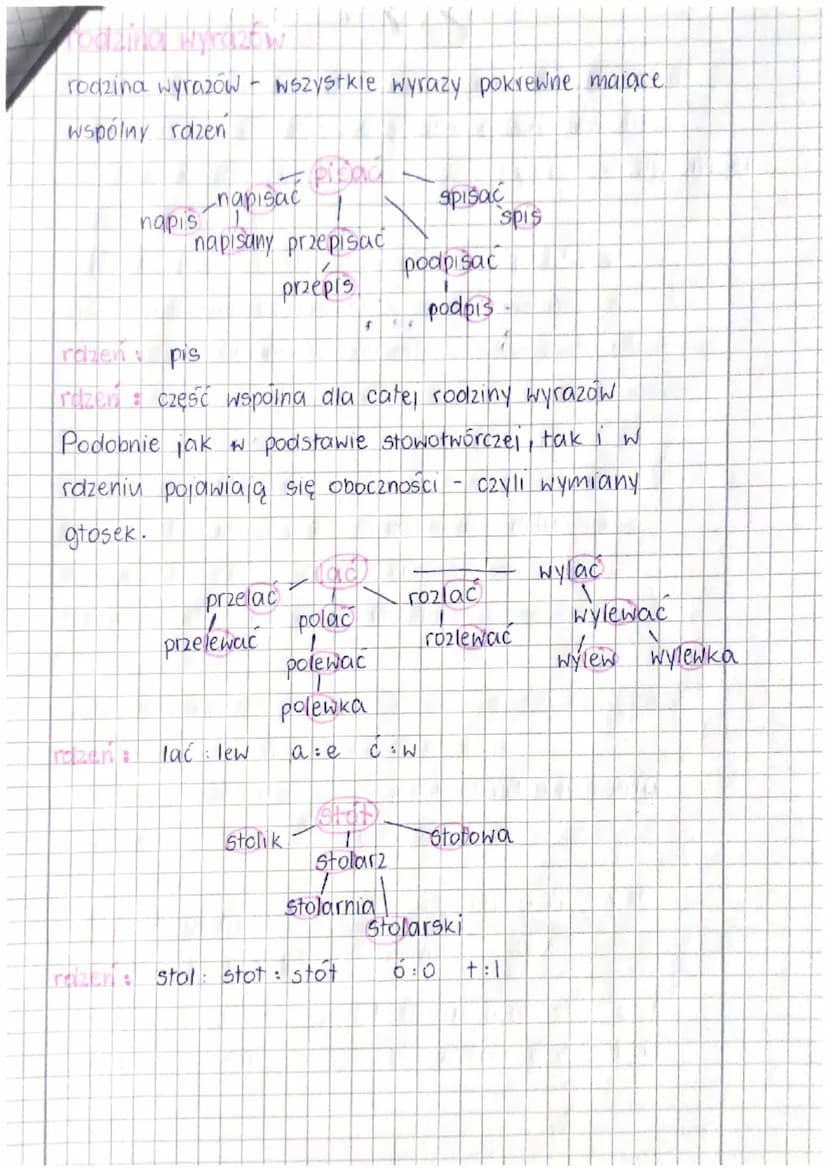 rodzina wyrazów
rodzina wyrazów - wszystkie wyrazy pokrewne mające
wspólny rdzeń
pisać
napisać spisać
napis spis
napisany przepisać podpisać
przepis podpis
rdzeń: pis
rdzeń: część wspólna dla całej rodziny wyrazów
Podobnie jak w podstawie słowotwórczej, tak i w
rdzeniu pojawiają się oboczności - czyli wymiany
głosek.
lać wylać
przelać polać rozlać wylewać
przelewać polewać rozlewać wylew wylewka
polewka
rdzeń: lać : lew a:e ć:w
stół
stolik stolarz stołowa
stolarnia
stolarski
rdzeń: stol : stoł : stół ó:o ł:l